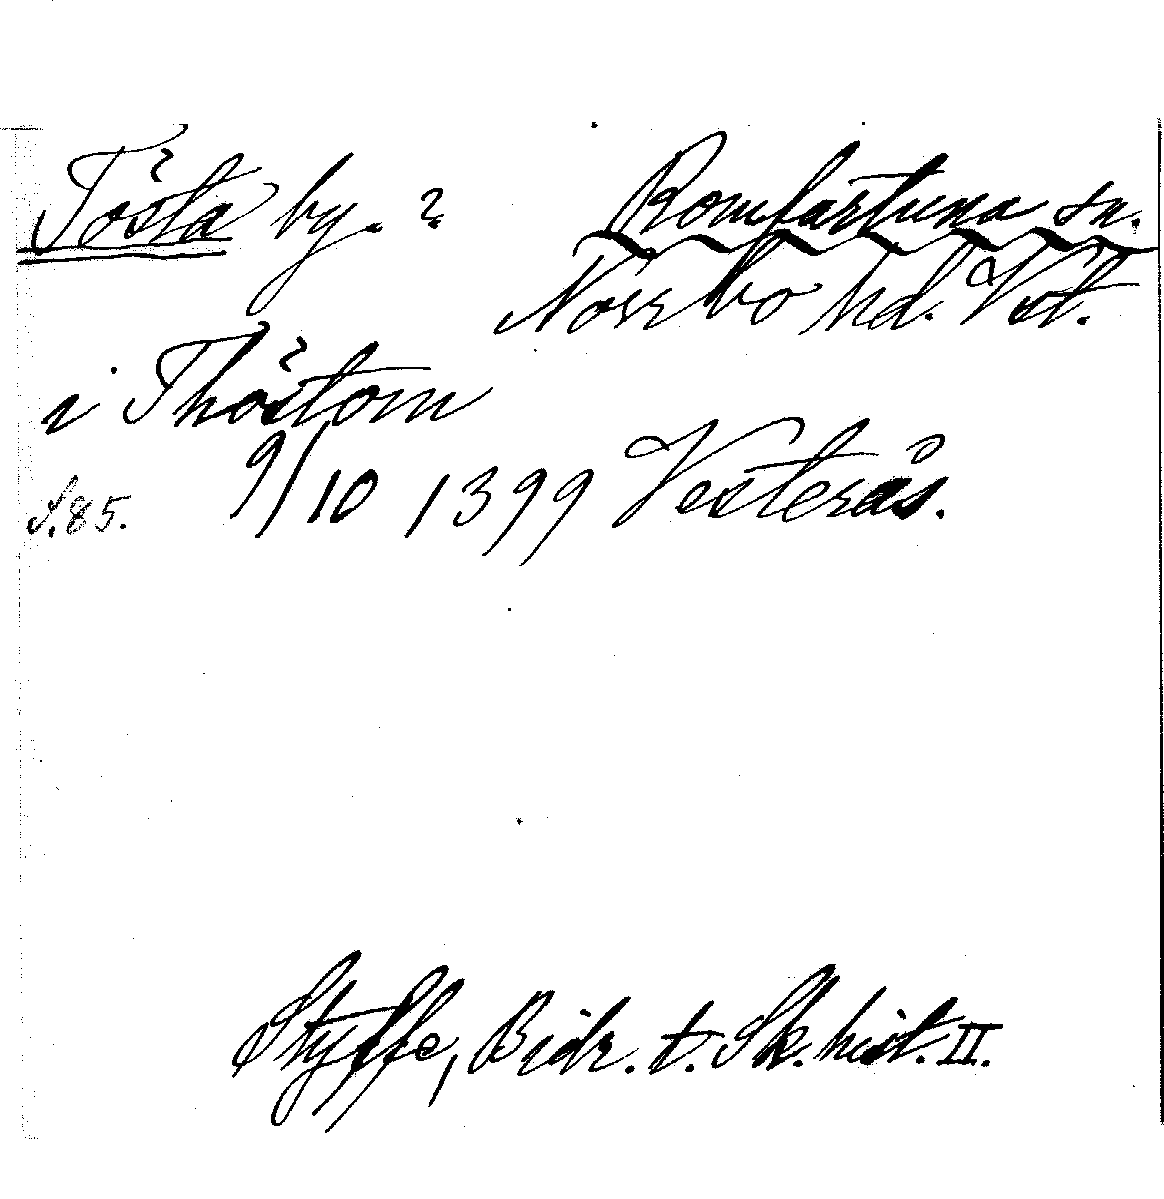 Tösta by. ? Romfartuna sn.
Norrbo hd. Vst.
i Thöstom
S.85. 9/10 1399 Vesterås.
Styffe, Bidr. t. Sk. hist. II.